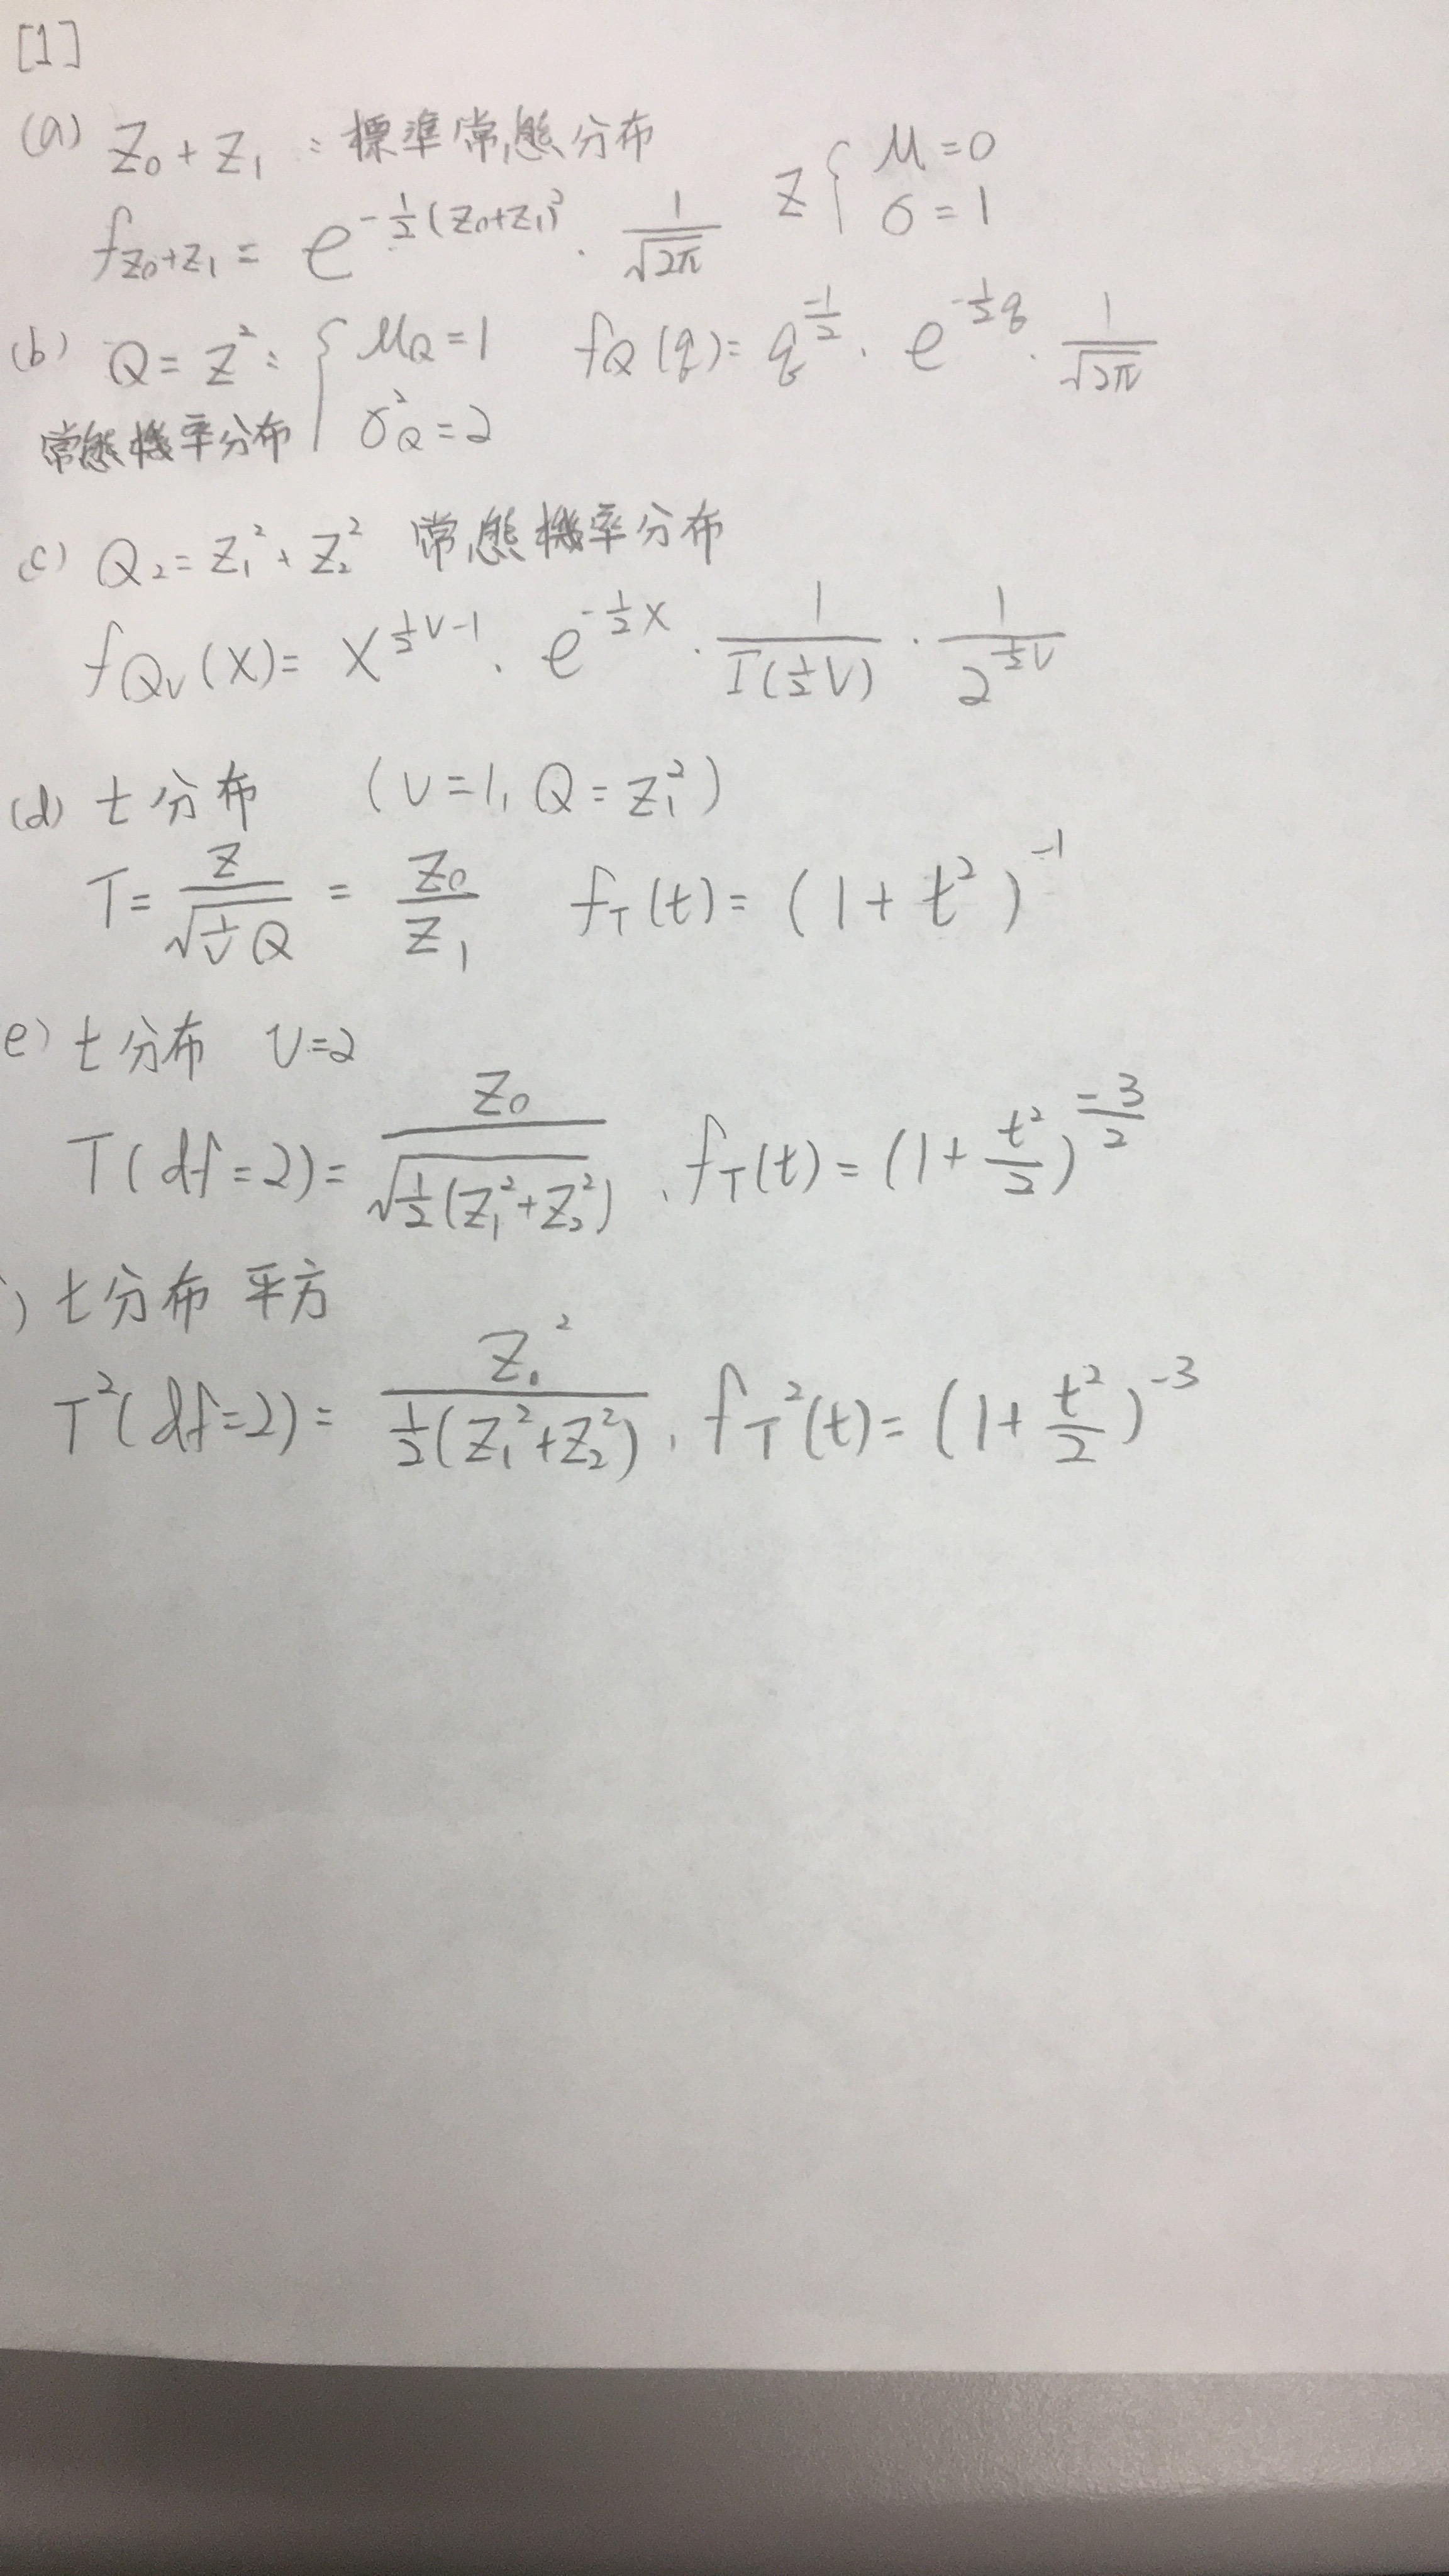 [1]
(a) Z₀ + Z₁ : 標準常態分布 Z { μ = 0 σ = 1
f_{Z₀+Z₁} = e^{-1/2 (Z₀+Z₁)²} · 1/√2π
(b) Q = Z² : { μ_Q = 1 σ²_Q = 2 f_Q(q) = q^{-1/2} · e^{-1/2 q} · 1/√2π
常態機率分布
(c) Q₂ = Z₁² + Z₂² 常態機率分布
f_{Qᵥ}(x) = x^{1/2 V - 1} · e^{-1/2 x} · 1/Γ(1/2 V) · 1/2^{1/2 V}
(d) t 分布 (V = 1, Q = Z₁²)
T = Z/√(1/V Q) = Z₀/Z₁ f_T(t) = (1 + t²)^{-1}
e) t 分布 V = 2
T(df = 2) = Z₀/√(1/2 (Z₁² + Z₂²)) , f_T(t) = (1 + t²/2)^{-3/2}
) t 分布 平方
T²(df = 2) = Z₀²/(1/2 (Z₁² + Z₂²)) , f_T²(t) = (1 + t²/2)^{-3}